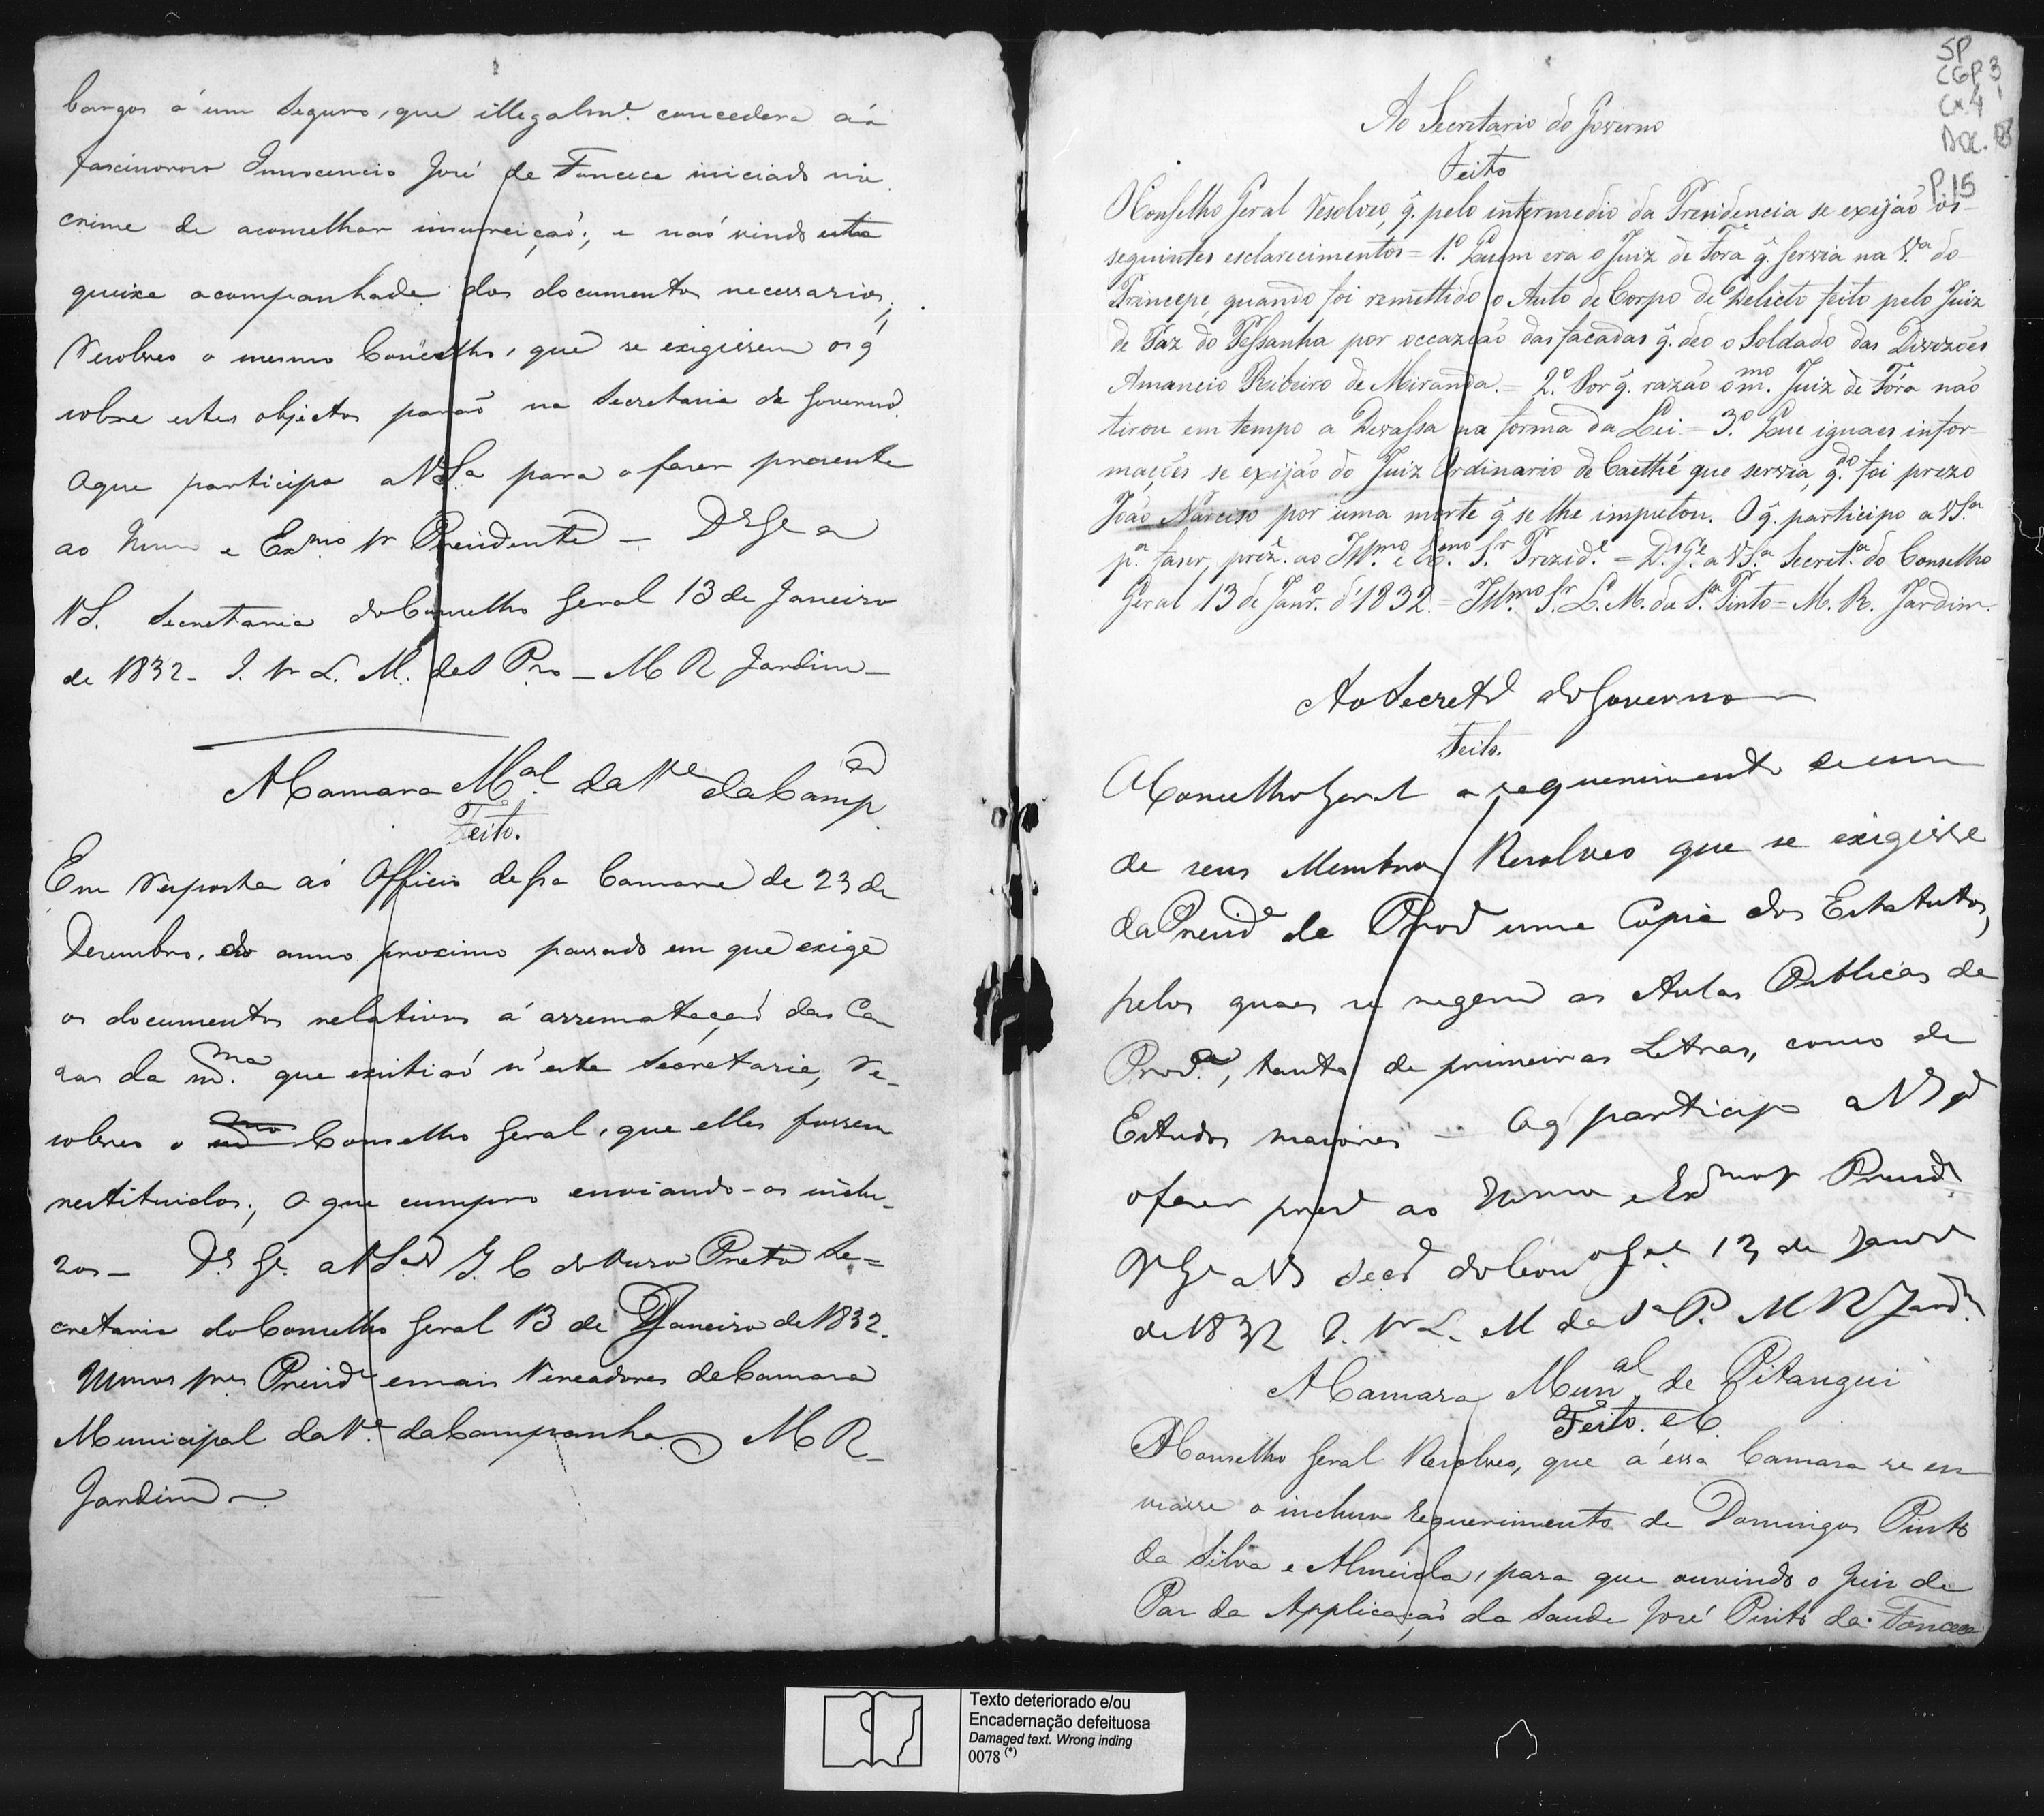 bargos á um Seguro, que illegalm.e concedera áo
fascinoroso Innocencio José de Fonceca iniciado no
crime de aconselhar insurreição; e não vindo esta
queixa acompanhada dos documentos necessarios;
Resolveo o mesmo Conselho, que se exigissem os q̃
sobre estes objectos parão na Secretaria do Governo.
O que participo a V S.a para o fazer presente
ao Illmo e Ex.mo Sr Presidente — D.s G.e a
V S. Secretaria do Conselho Geral 13 de Janeiro
de 1832 - I. Sr L. M. da S Pto — M R Jardim —
A Camara M.al da V.a da Camp.a
Feito.
Em resposta áo Officio dessa Camara de 23 de
Dezembro, do anno proximo passado em que exige
os documentos relativos á arremataçaõ das Ca
zas da m.ma que existiaõ n'esta Secretaria, Re-
solveo o mmo Conselho Geral, que elles fossem
restituidos; O que cumpro enviando-os inclu-
zos — D.s G.e a V S.as I. C do Ouro Preto Se=
cretaria do Conselho Geral 13 de Janeiro de 1832.
Illmos Srs Presid.e e mais Vereadores da Camara
Municipal da V.a da Campanha M R
Jardim —
SP
CGP 3
Cx. 4
Doc.
P. 15
Ao Secretario do Governo
Feito
O Conselho Geral Resolveo, q̃. pelo intermedio da Presidencia se exijão os
seguintes esclarecimentos = 1.º Quem era o Juiz de Fóra q̃. servia na V.a do
Principe, quando foi remettido o Auto de Corpo de Delicto feito pelo Juiz
de Paz do Pessanha por occazião das facadas q̃. deo o Soldado das Divizões
Amancio Ribeiro de Miranda. = 2.º Por q̃. razão o m.mo Juiz de Fóra não
tirou em tempo a Devassa na forma da Lei = 3.º Que iguaes infor-
mações se exijão do Juiz Ordinario de Caethé que servia, q.do foi prezo
João Narciso por uma morte q̃. se lhe imputou. O q̃. participo a V S.a
p.a fazer prez.e ao Ill.mo e Ex.mo S.r Prezid.e = D.s G.e a V S.a Secret.a do Conselho
Geral 13 de Janr.o d'1832. = Ill.mo S.r L. M. da S.a Pinto = M. R. Jardim.
Ao Secret.o do Governo
Feito.
O Conselho Geral a requerimento de um
de seus Membros Resolveo que se exigisse
da Presid.a da Prov.a uma Copia dos Estatutos,
pelos quaes se regem as Aulas Publicas da
Prov.a, tanto de primeiras Letras, como de
Estudos maiores — O q̃ participo a V S p.a
o fazer prez.e ao Illmo e Ex.mo Sr Presid.e
D.s G.e a V S Secr.a do Con.o G.al 13 de Janr.o
de 1832 I. Sr L. M da S.a P. M R Jard.m
A Camara Mun.al de Pitangui
Feito. e C.
O Conselho Geral Resolveo, que á essa Camara se en
viasse o incluso requerimento de Domingos Pinto
da Silva e Almeida, para que ouvindo o Juiz de
Paz da Applicação da Saude José Pinto da Fonceca
Texto deteriorado e/ou
Encadernação defeituosa
Damaged text. Wrong inding
0078 (*)